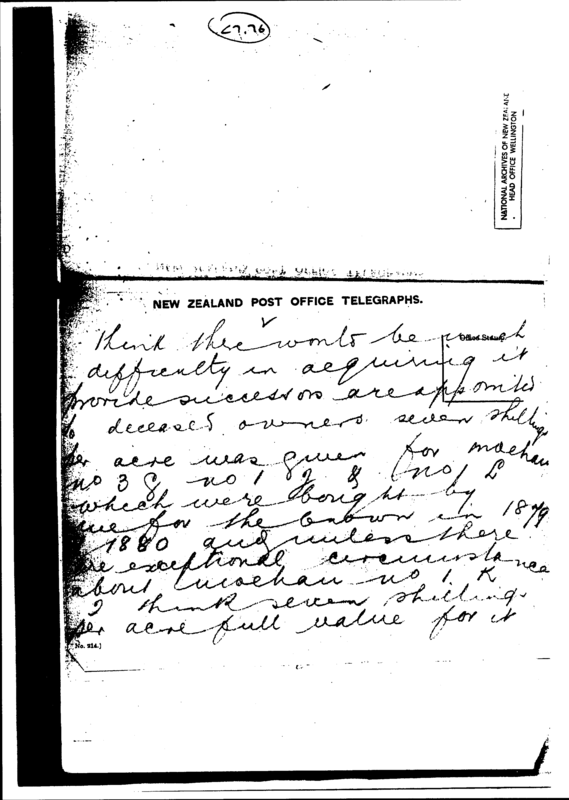 27.76
NATIONAL ARCHIVES OF NEW ZEALAND
HEAD OFFICE WELLINGTON
NEW ZEALAND POST OFFICE TELEGRAPHS.
Office Stamp
think there wonts be much
difficulty in acquiring it
provide successors are appointed
to deceased owners seven shillings
per acre was given for moehau
no 3 no 1 & no 1 L
which were bought by
me for the crown in 1879
1880 and unless there
are exceptional circumstance
about moehau no 1. K
I think seven shillings
per acre full value for it
No. 214.)